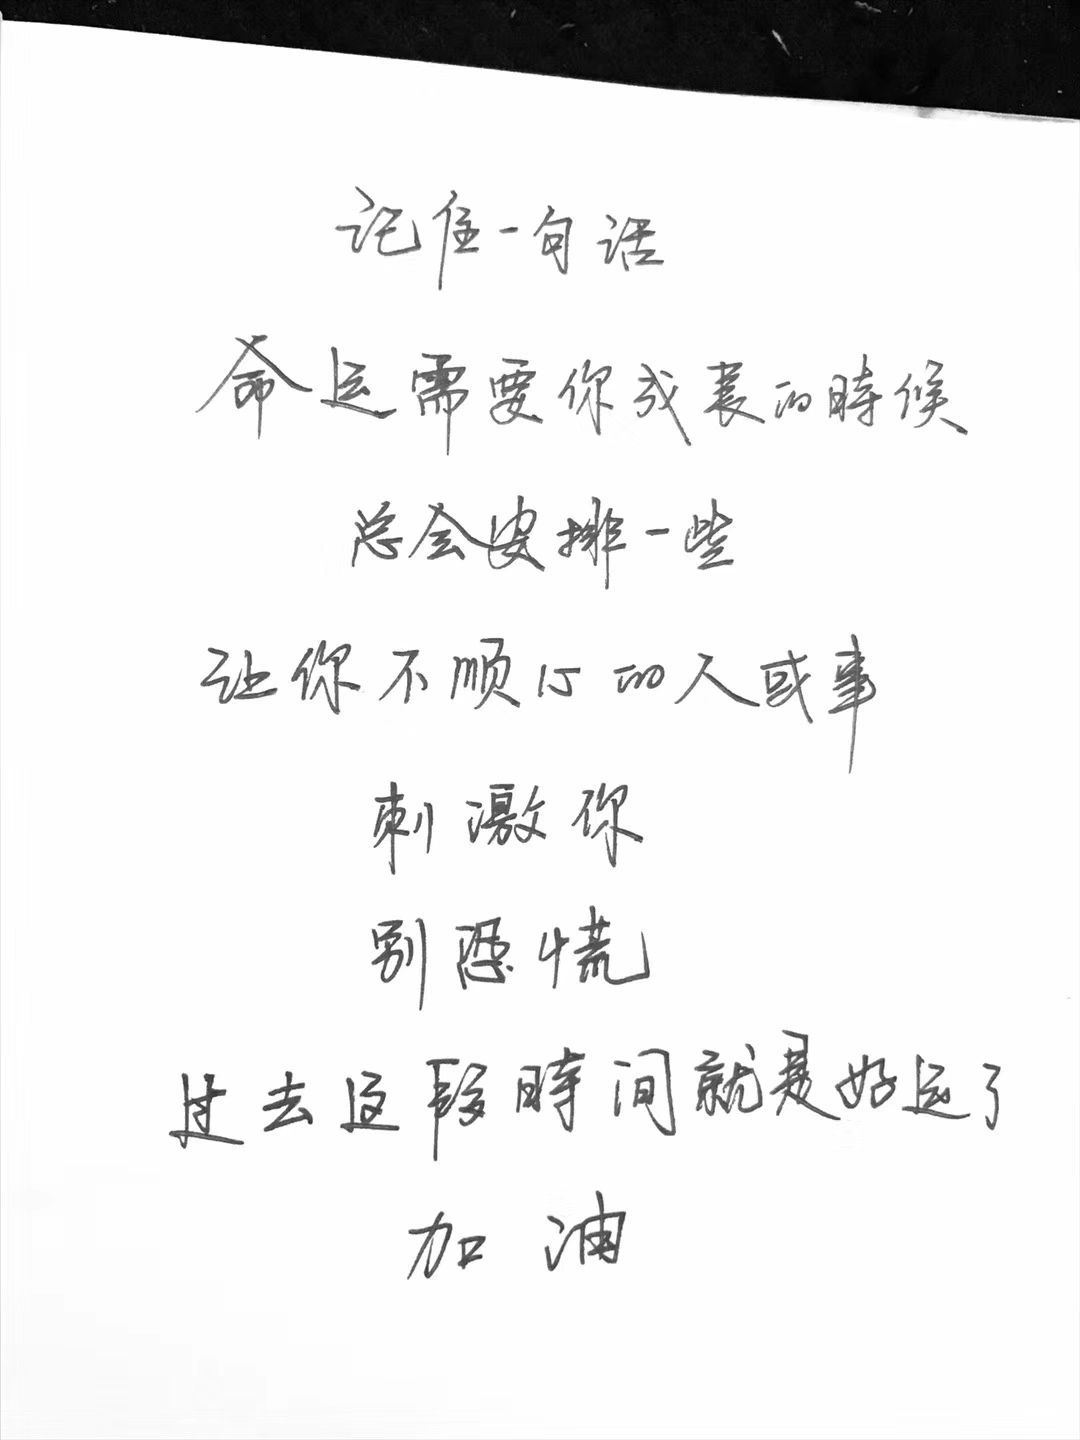 记住一句话
命运需要你成长的時候
总会安排一些
让你不顺心的人或事
刺激你
别恐慌
过去这段時间就是好运了
加油